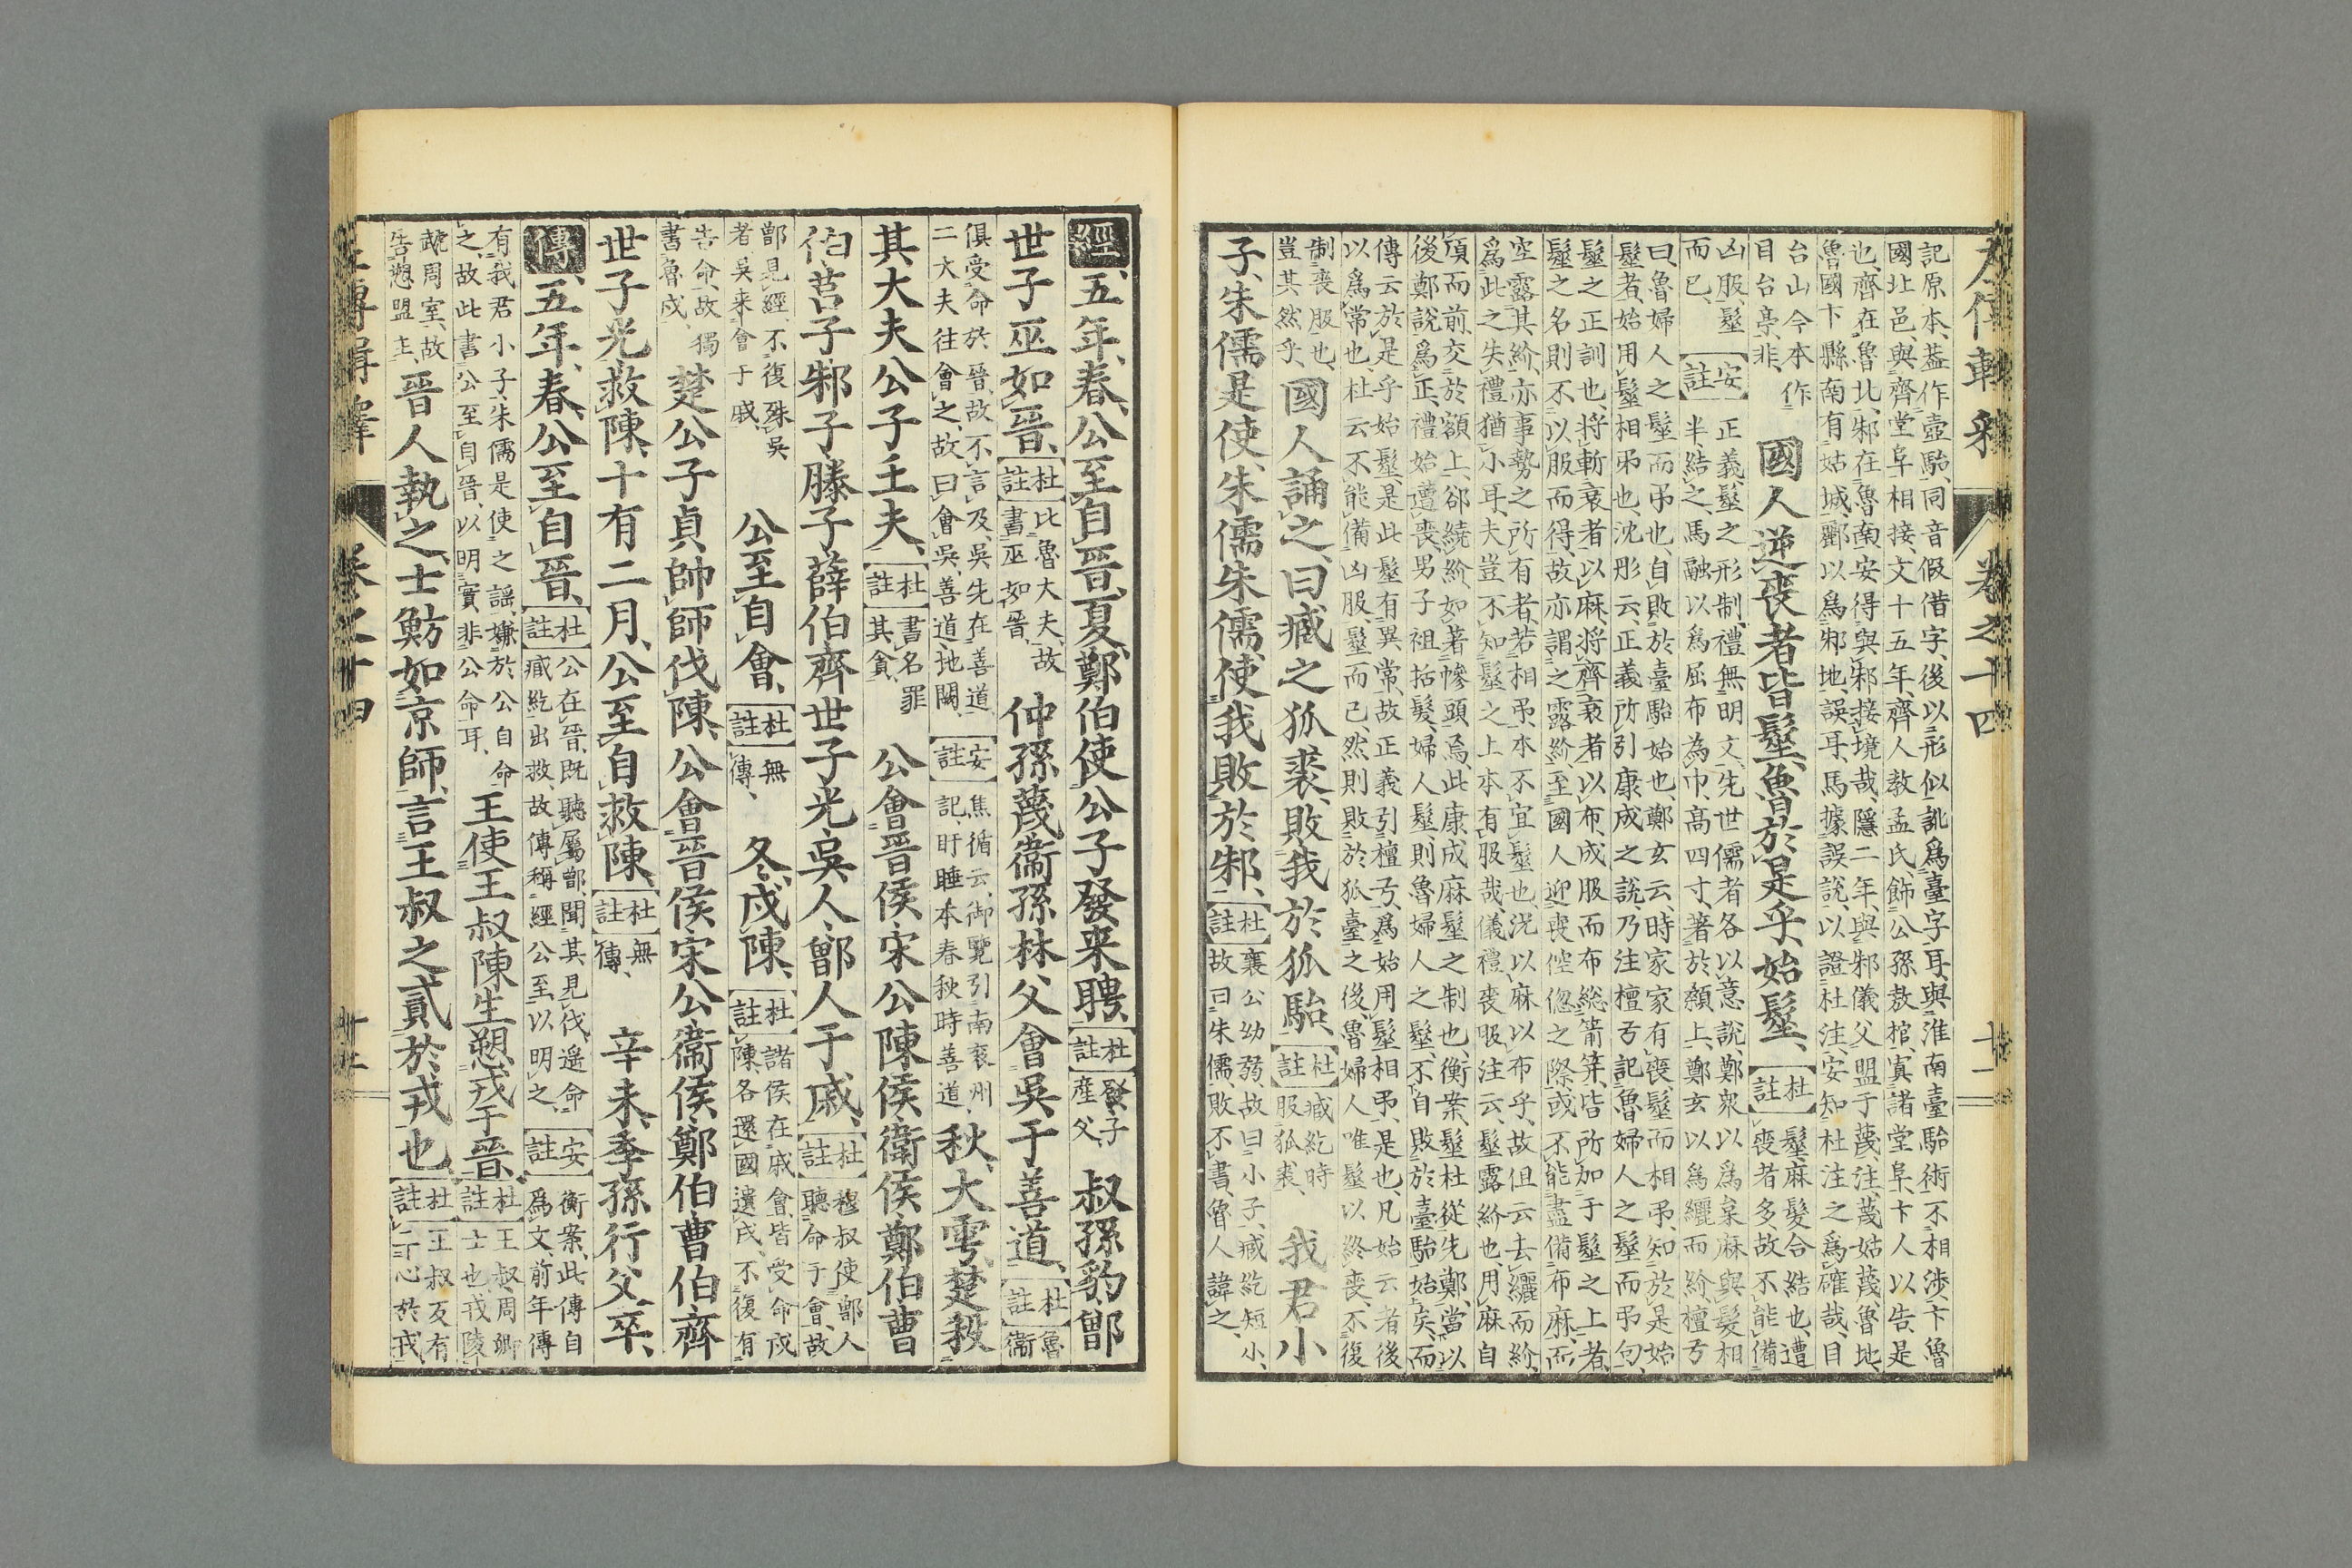 左傳輯釋 卷之十四 十一
記原本、葢作壺駘、同音假借字、後以形似訛爲臺字耳、與淮南臺駘術不相涉、卞魯
國北邑、與齊堂阜相接、文十五年、齊人教孟氏、飾公孫敖棺、寘諸堂阜、卞人以告、是
也、齊在魯北、邾在魯南、安得與邾接境哉、隱二年、與邾儀父盟于蔑、注、蔑姑蔑、魯地、
魯國卞縣南有姑城、酈以爲邾地、誤耳、馬據誤說、以證杜注、安知杜注之爲確哉、目
台山今本作
目台亭、非、
國人逆喪者皆髽、魯於是乎始髽、
杜註
髽、麻髮合結也、遭
喪者多、故不能備
凶服、髽
而已、
安註
正義、髽之形制、禮無明文、先世儒者各以意說、鄭衆以爲枲麻與髮相
半、結之、馬融以爲屈布為巾、高四寸、著於顙上、鄭玄以爲纚而紒、檀弓
曰、魯婦人之髽而弔也、自敗於臺駘始也、鄭玄云、時家家有喪、髽而相弔、知於是始
髽者、始用髽相弔也、沈彤云、正義所引康成之說、乃注檀弓記魯婦人之髽而弔句、
髽之正訓也、將斬衰者以麻、將齊衰者以布、成服而布緫箭筓、皆所加于髽之上者、
髽之名則不以服而得、故亦謂之露紒、至國人迎喪倥偬之際、或不能盡備布麻、而
空露其紒、亦事勢之所有者、若相弔、本不宜髽也、況以麻以布乎、故但云去纚而紒、
爲此之失禮猶小耳、夫豈不知髽之上本有服哉、儀禮喪服注云、髽露紒也、用麻自
項而前、交於額上、郤繞紒、如著幓頭焉、此康成麻髽之制也、衡案、髽杜從先鄭、當以
後鄭說爲正、禮始遭喪、男子袒括髮、婦人髽、則魯婦人之髽、不自敗於臺駘始矣、而
傳云於是乎始髽、是此髽有異常、故正義引檀弓、爲始用髽相弔、是也、凡始云者後
以爲常也、杜云不能備凶服、髽而已、然則敗於狐臺之後、魯婦人唯髽以終喪、不復
制喪服也、
豈其然乎、
國人誦之、曰、臧之狐裘、敗我於狐駘、
杜註
臧紇時
服狐裘、
我君小
子、朱儒是使、朱儒朱儒、使我敗於邾、
杜註
襄公幼弱、故曰小子、臧紇短小、
故曰朱儒、敗不書、魯人諱之、
經、五年、春、公至自晉、夏、鄭伯使公子發来聘、
杜註
發、子
產父、
叔孫豹鄫
世子巫如晉、
杜註
比魯大夫、故
書巫如晉、
仲孫蔑衞孫林父會吳于善道、
杜註
魯衞
俱受命於晉、故不言及、吳先在善道、
二大夫往會之、故曰會吳、善道地闕、
安註
焦循云、御覽引南兖州
記、盱眙本春秋時善道、
秋、大雩、楚殺
其大夫公子壬夫、
杜註
書名罪
其貪、
公會晉侯宋公陳侯衞侯鄭伯曹
伯莒子邾子滕子薛伯齊世子光、吳人、鄫人于戚、
杜註
穆叔使鄫人
聽命于會、故
鄫見經、不復殊吳
者、吳来會于戚、
公至自會、
杜註
無
傳、
冬、戍陳、
杜註
諸侯在戚會、皆受命戍
陳、各還國遣戍、不復有
告命、故獨
書魯戍、
楚公子貞帥師伐陳、公會晉侯宋公衞侯鄭伯曹伯齊
世子光救陳、十有二月、公至自救陳、
杜註
無
傳、
辛未、季孫行父卒、
傳、五年、春、公至自晉、
杜註
公在晉、既聽屬鄫、聞其見伐、遥命
臧紇出救、故傳稱經公至以明之、
安註
衡案、此傳自
爲文、前年傳
有我君小子、朱儒是使之謡、嫌於公自命
之、故此書公至自晉、以明實非公命耳、
王使王叔陳生愬戎于晉、
杜註
王叔、周卿
士也、戎陵
虣周室、故
告愬盟主、
晉人執之、士魴如京師、言王叔之貳於戎也、
杜註
王叔反有
二心於戎、
左傳輯釋 卷之十四